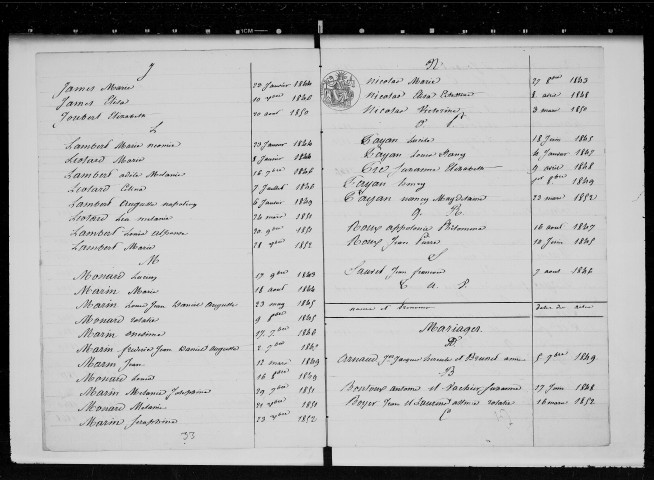 J
James Marie 20 Janvier 1844
James Elisa 10 1840
Joubert Elizabeth 20 aout 1850
L
Lambert Marie noemie 23 Janvier 1844
Liotard Marie 8 Janvier 1844
Lambert adèle Melanie 16 7bre 1846
Liotard Elina 7 Juillet 1846
Lambert auguste napoleon 6 Janvier 1849
Liotard Lea melanie 24 mars 1851
Lambert Louis alphonse 20 9bre 1851
Lambert Marie 28 1852
M
Monard Lucien 17 9bre 1843
Marin Marie 18 aout 1844
Marin Louis Jean Daniel auguste 23 may 1845
Monard rosalie 9 1845
Marin onesime 17 7bre 1846
Marin Jean Daniel auguste 2 7bre
Marin Jean 12 mars 1849
Monard Louise 16 1849
Marin Melanie Josephine 29 7bre 1851
Monard Melanie 1851
Marin Seraphine 23 1852
33
N
nicolas Marie 27 8bre 1843
nicolas 8 avr 1848
nicolas Victorine 3 mars 1850
P
Payan Lucile 18 Juin 1845
Payan Louise Fany 4 Janvier 1847
Pré Suzanne Elizabeth 9 avril 1848
Payan 8bre 1849
Payan nancy Magdelaine 23 mars 1852
Q. R
Roux appolonie Philomene 16 aout 1847
Roux Jean Pierre 10 Juin 1845
S
Sauret Jean francois 7 aout 1846
noms et Prenoms Dates des actes
Mariages
A
Arnaud Jn Jacques et Brunet anne 5 7bre 1849
B
Bontoux antoine et Suzanne 27 Juin 1848
Boyer Jean et rosalie 16 mars 1852
C